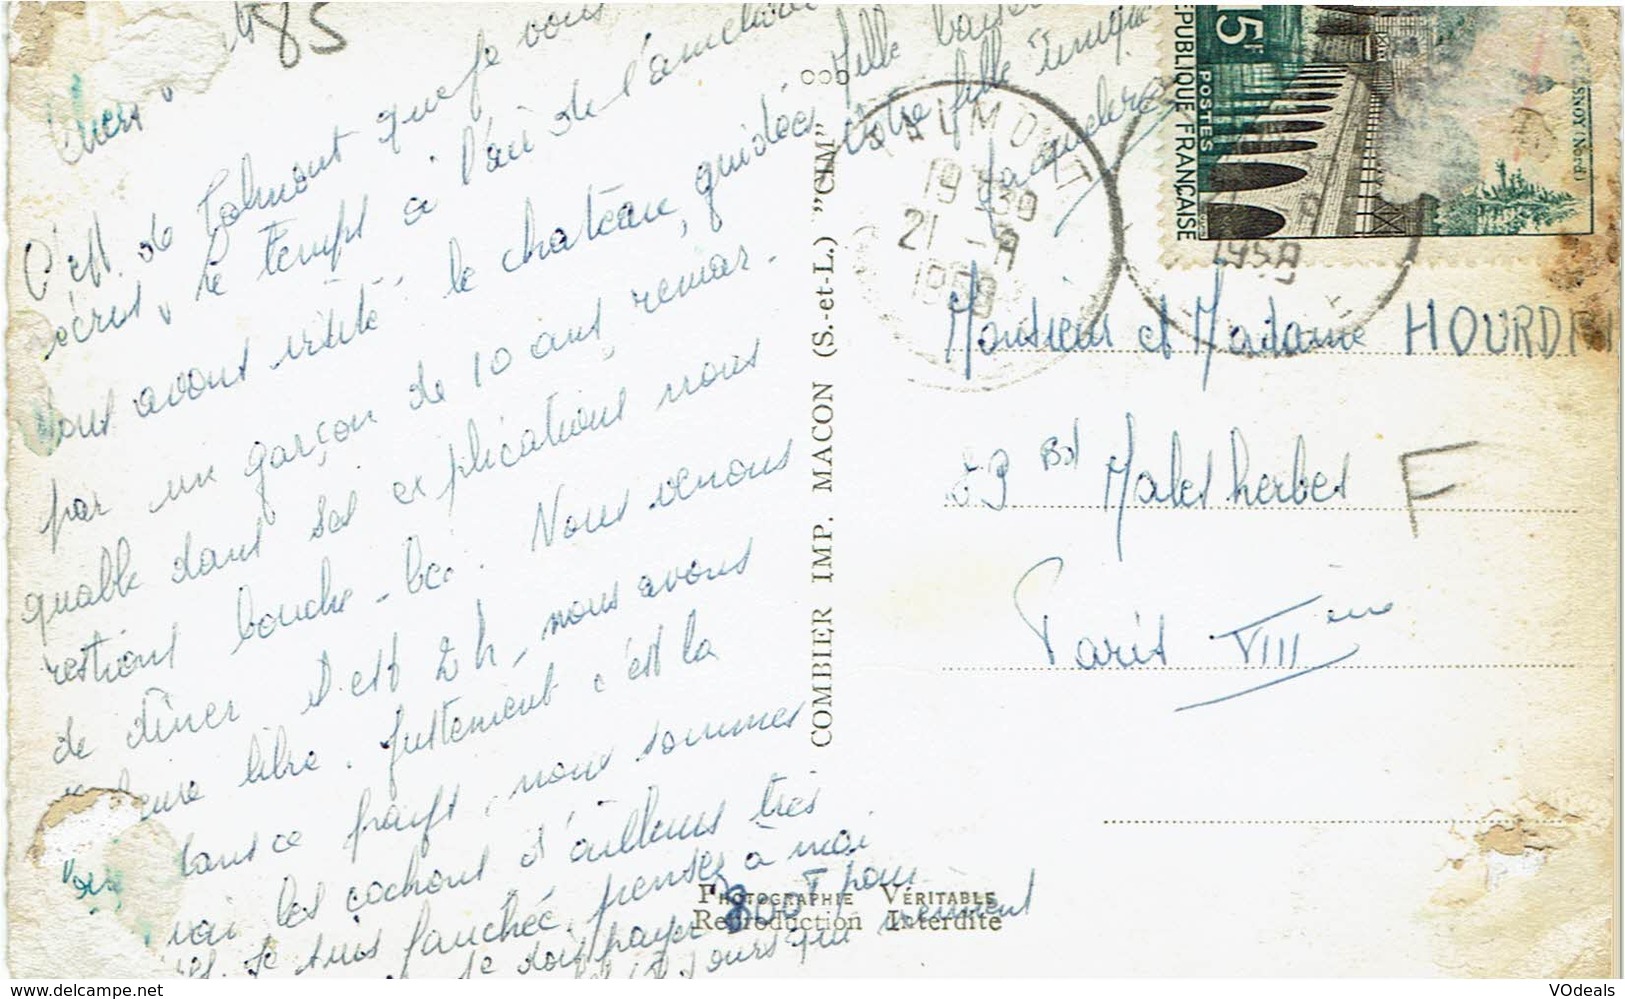 85
Chers
C'est de Talmont que je vous
écris, le temps a l'air de s'améliorer
Nous avons visité le château, guidées
par un garçon de 10 ans, remar-
quable dans ses explications nous
restions bouche-bée. Nous venons
de dîner il est 2h, nous avons
heure libre. Justement c'est la
dans ce pays, nous sommes
voir les cochons d'ailleurs très
Je suis fauchée, pensez à moi
je dois payer 800F pour
jours qui viennent
Mille baisers
votre fille unique
COMBIER IMP. MACON (S.-et-L.) "CIM"
PHOTOGRAPHIE VÉRITABLE
Reproduction Interdite
TALMONT
19 30
21 -
1959
15F
POSTES
REPUBLIQUE FRANÇAISE
(Nord)
Monsieur et Madame HOURDIN
89 Bd Malesherbes
F
Paris VIIIème
www.delcampe.net
VOdeals